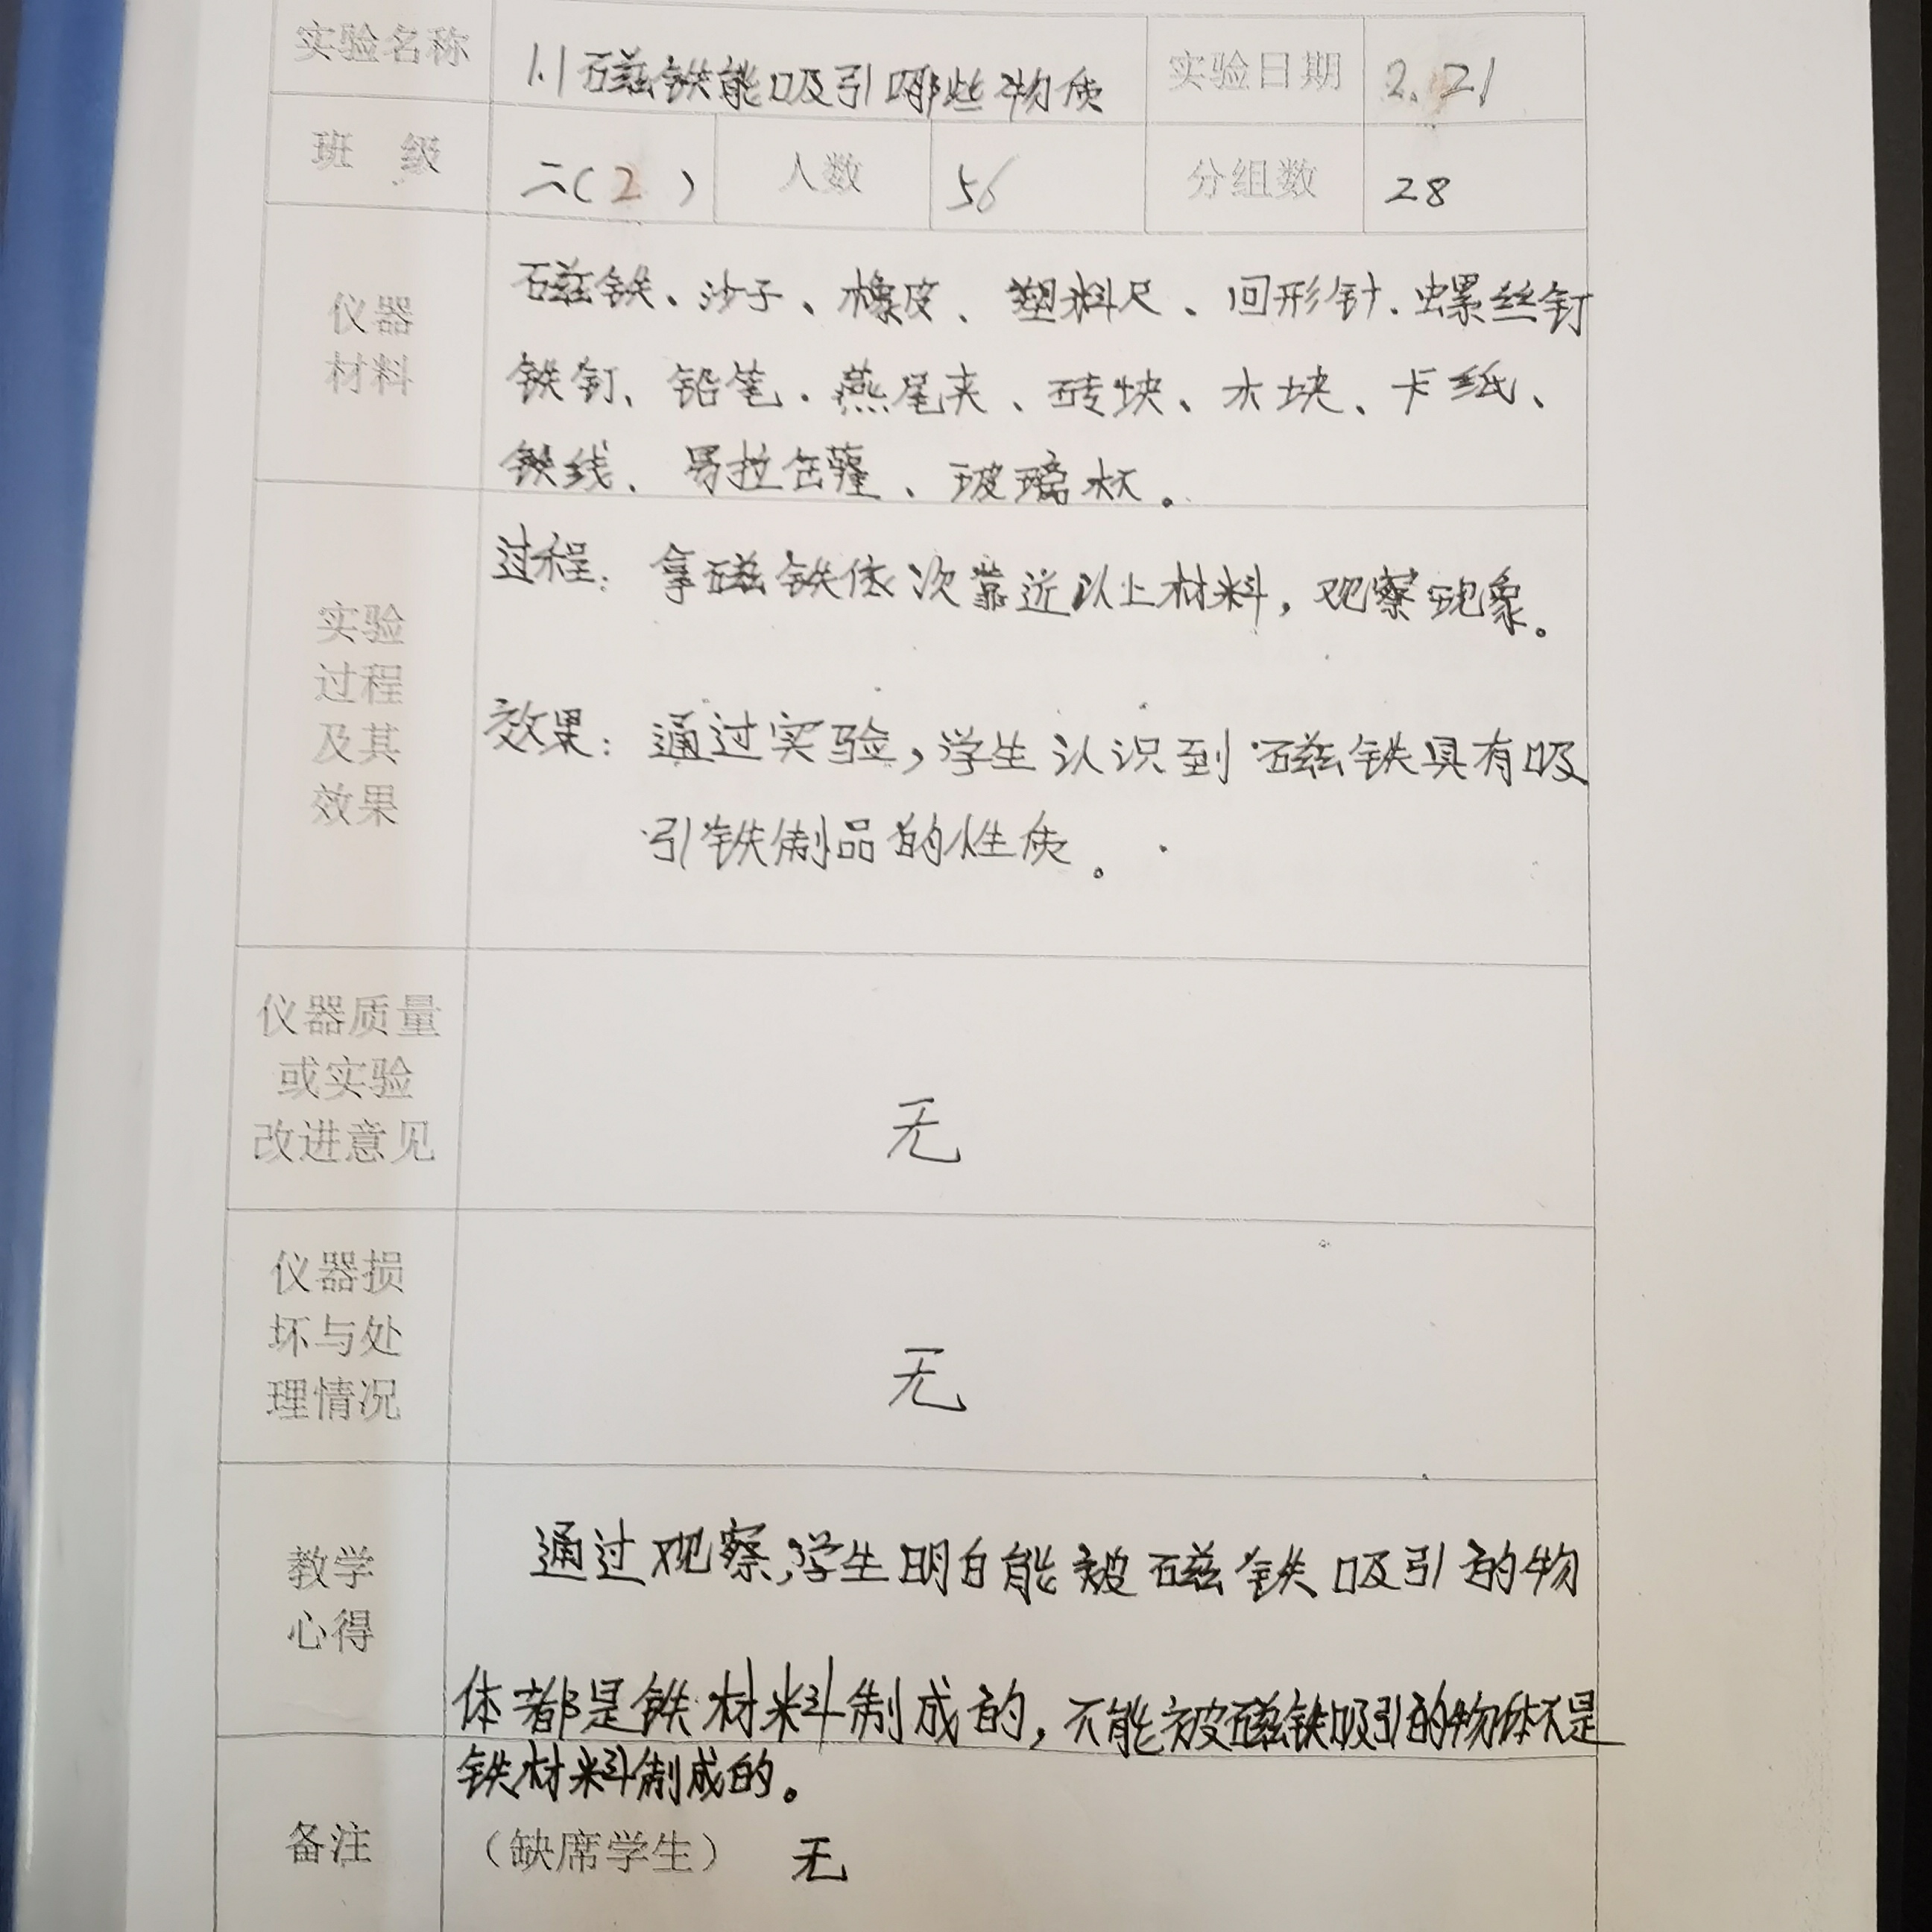 实验名称 1.1磁铁能吸引哪些物质 实验日期 2.21
班 级 二(2) 人数 56 分组数 28
仪器
材料
磁铁、沙子、橡皮、塑料尺、回形针、螺丝钉
铁钉、铅笔、燕尾夹、砖块、木块、卡纸、
铁线、易拉罐、玻璃杯。
实验
过程
及其
效果
过程：拿磁铁依次靠近以上材料，观察现象。
效果：通过实验，学生认识到磁铁具有吸
引铁制品的性质。
仪器质量
或实验
改进意见
无
仪器损
坏与处
理情况
无
教学
心得
通过观察，学生明白能被磁铁吸引的物
体都是铁材料制成的，不能被磁铁吸引的物体不是
铁材料制成的。
备注 （缺席学生） 无